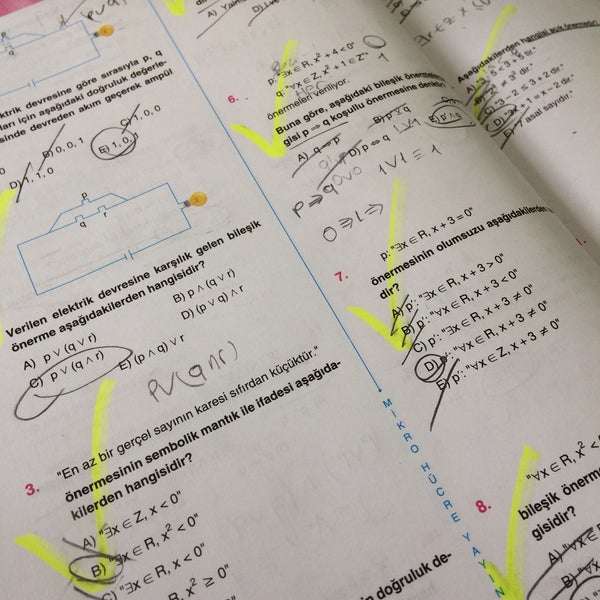 p
lektrik devresine göre sırasıyla p, q
ları için aşağıdaki doğruluk değerle-
sinde devreden akım geçerek ampül
B) 0, 0, 1
C) 1, 0, 0
D) 1, 1, 0
E) 1, 0, 1
p
q r
Verilen elektrik devresine karşılık gelen bileşik
önerme aşağıdakilerden hangisidir?
A) p ∨ (q ∨ r)
B) p ∧ (q ∨ r)
C) p ∨ (q ∧ r)
D) (p ∨ q) ∧ r
E) (p ∧ q) ∨ r
p∨(q∧r)
3. "En az bir gerçel sayının karesi sıfırdan küçüktür."
önermesinin sembolik mantık ile ifadesi aşağıda-
kilerden hangisidir?
A) "∃x ∈ Z, x < 0"
B) "∃x ∈ R, x² < 0"
C) "∃x ∈ R, x < 0"
∈ R, x² ≥ 0"
in doğruluk de-
6. p: "∃x ∈ R, x² + 4 < 0"
q: "∀x ∈ Z, x² + 1 ∈ Z"
önermeleri veriliyor.
Buna göre, aşağıdaki bileşik önermelerden
gisi p ⇒ q koşullu önermesine denktir?
A) q ⇒ p
D) p ⇔ q
p ⇒ q
0 ⇒ 1 ⇒
1 ∨ 1 ≡ 1
7. p: "∃x ∈ R, x + 3 = 0"
önermesinin olumsuzu aşağıdakilerden
dir?
A) p': "∃x ∈ R, x + 3 > 0"
B) p': "∀x ∈ R, x + 3 < 0"
C) p': "∃x ∈ R, x + 3 ≠ 0"
D) p': "∀x ∈ R, x + 3 ≠ 0"
E) p': "∀x ∈ Z, x + 3 ≠ 0"
MİKRO HÜCRE YAYIN
8. "∀x ∈ R, x² <
bileşik önerm
gisidir?
A) "∀x ∈
Aşağıdakilerden hangisi açık önermedir